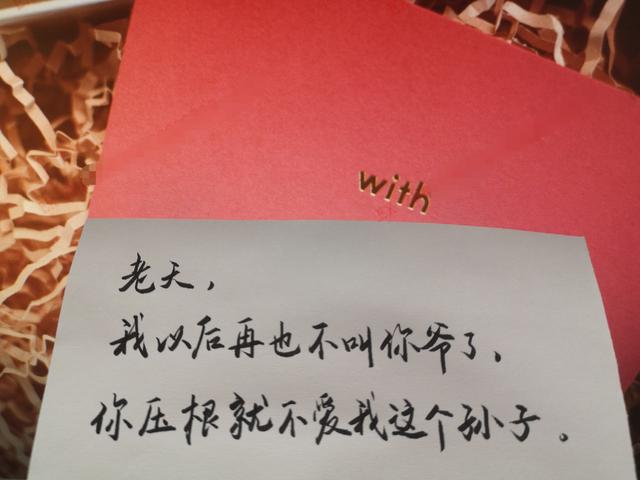 with
老天，
我以后再也不叫你爷了，
你压根就不爱我这个孙子。